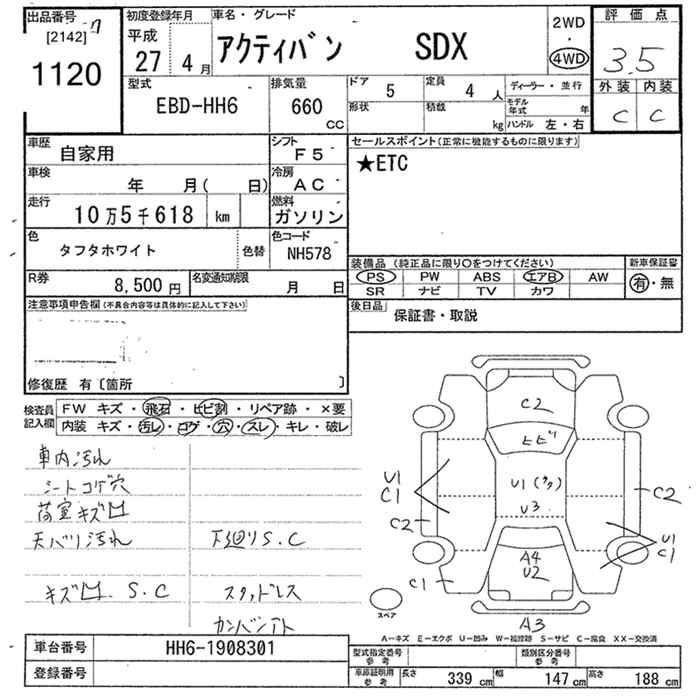 出品番号 [2142] 7
1120
初度登録年月
平成
27 4月
車名・グレード
アクティバン SDX
2WD
・
4WD
評価点
3.5
外装 内装
C C
型式
EBD-HH6
排気量
660 CC
ドア 5
定員 4 人
形状
積載 kg
ディーラー・並行
モデル年式 年
ハンドル 左・右
車歴
自家用
シフト
F5
セールスポイント(正常に機能するものに限ります)
★ETC
車検
年 月( 日)
冷房
AC
走行
10万5千618 km
燃料
ガソリン
色
タフタホワイト
色替
色コード
NH578
装備品(純正品に限り○をつけてください)
PS PW ABS エアB AW
SR ナビ TV カワ
新車保証書
有・無
R券
8,500円
名変通知期限
月 日
後日品
保証書・取説
注意事項申告欄(不具合内容等は具体的に記入して下さい)
修復歴 有〔箇所 〕
検査員記入欄
FW キズ・飛石・ヒビ割・リペア跡・×要
内装 キズ・汚レ・コゲ・穴・スレ・キレ・破レ
車内汚れ
シートコゲ穴
荷室キズ凹
天バリ汚れ 下廻りS.C
キズ凹 S.C スタッドレス
C2
ヒビ
U1
C1
U1
U3
C2
C2
U1
C1
A4
U2
C1
スペア
A3
A－キズ E－エクボ U－凹み W－補修跡 S－サビ C－腐食 XX－交換済
車台番号
HH6-1908301
登録番号
型式指定番号
参考
類別区分番号
参考
車庫証明用
参考
長さ 339 cm
幅 147 cm
高さ 188 cm